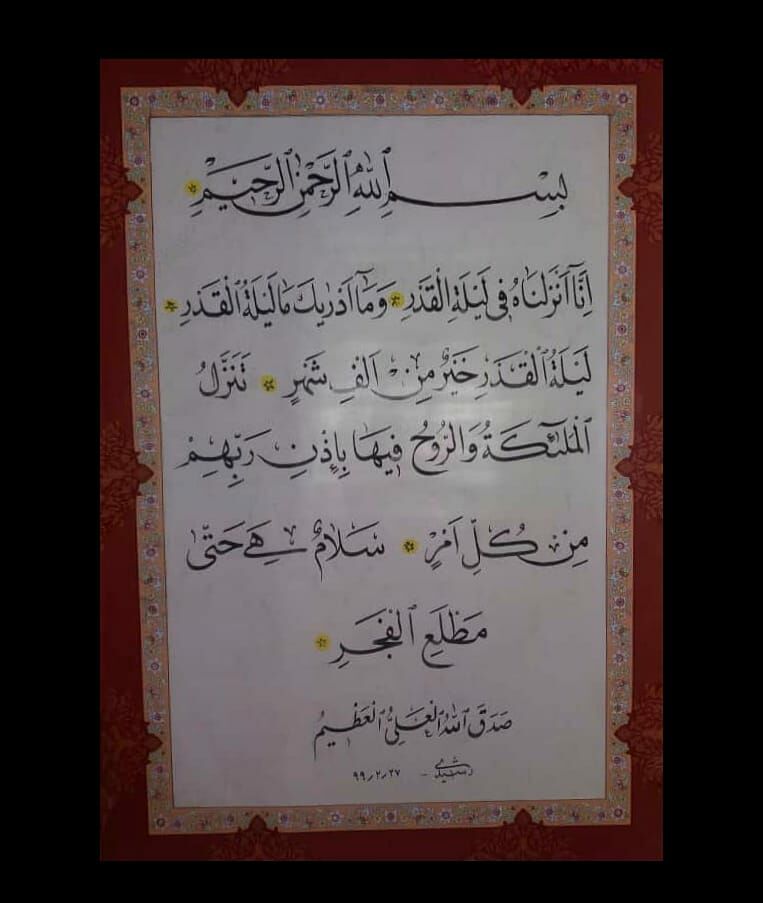 بِسْمِ ٱللّٰهِ ٱلرَّحْمٰنِ ٱلرَّحِيْمِ
اِنَّآ اَنْزَلْنَاهُ فِي لَيْلَةِ الْقَدْرِ وَمَآ اَدْرٰيكَ مَا لَيْلَةُ الْقَدْرِ
لَيْلَةُ الْقَدْرِ خَيْرٌ مِنْ اَلْفِ شَهْرٍ تَنَزَّلُ
الْمَلٰٓئِكَةُ وَالرُّوحُ فِيهَا بِإِذْنِ رَبِّهِمْ
مِنْ كُلِّ اَمْرٍ سَلَامٌ هِيَ حَتّٰى
مَطْلَعِ الْفَجْرِ
صَدَقَ ٱللّٰهُ الْعَلِيُّ الْعَظِيْمُ
رشیدی - ٩٩/٢/٢٧